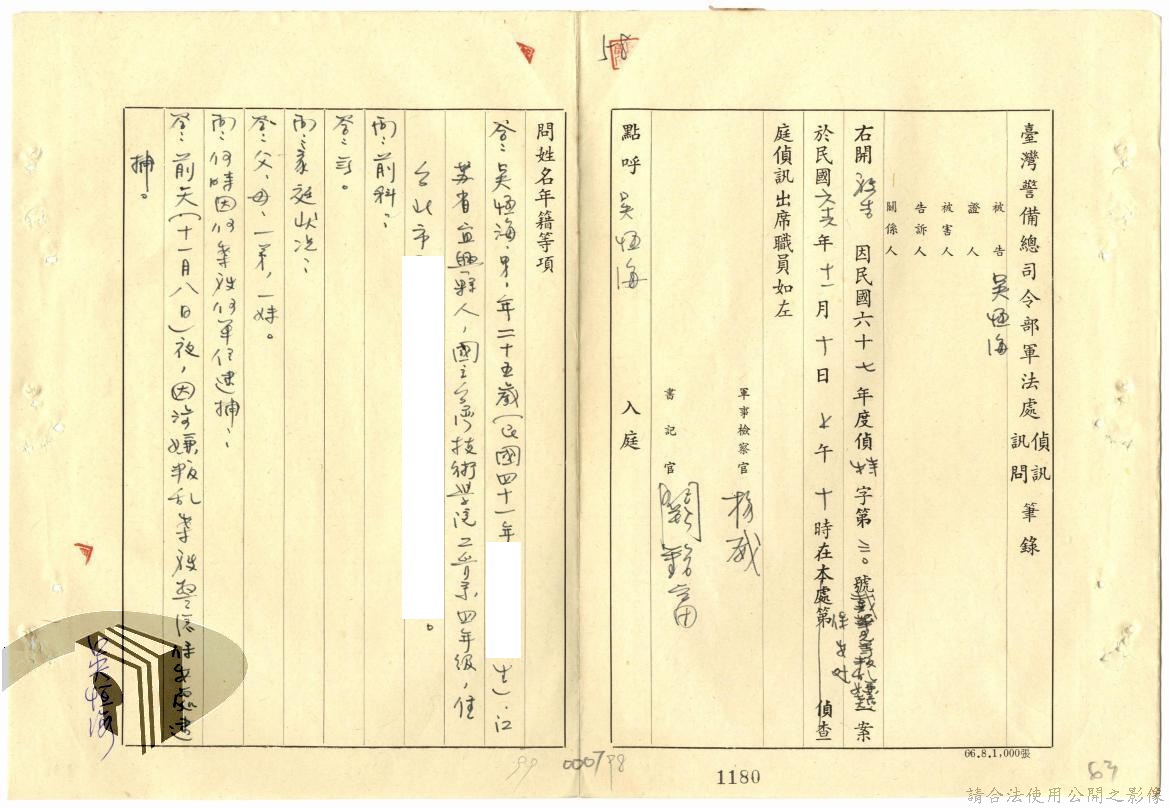 臺灣警備總司令部軍法處偵訊訊問筆錄
被告 吳恆海
證人
被害人
告訴人
關係人
右開被告因民國六十七年度偵特字第三〇號案
於民國六十七年十一月十日上午十時在本處第偵查
保安處
庭偵訊出席職員如左
軍事檢察官
書記官
點呼 吳恆海 入庭
問姓名年籍等項
答:吳恆海,男,年二十五歲(民國四十一年生),江
苏省宜興縣人,國立台灣技術學院工管系四年級,住
台北市。
問:前科?
答:無。
問:家庭狀況?
答:父、母、一弟,一妹。
問:何時因何案被何單位逮捕?
答:前天(十一月八日)夜,因涉嫌叛乱案被警總保安處逮
捕。
吳恆海
66.8.1,000張
1180
000798
99
63
58
請合法使用公開之影像